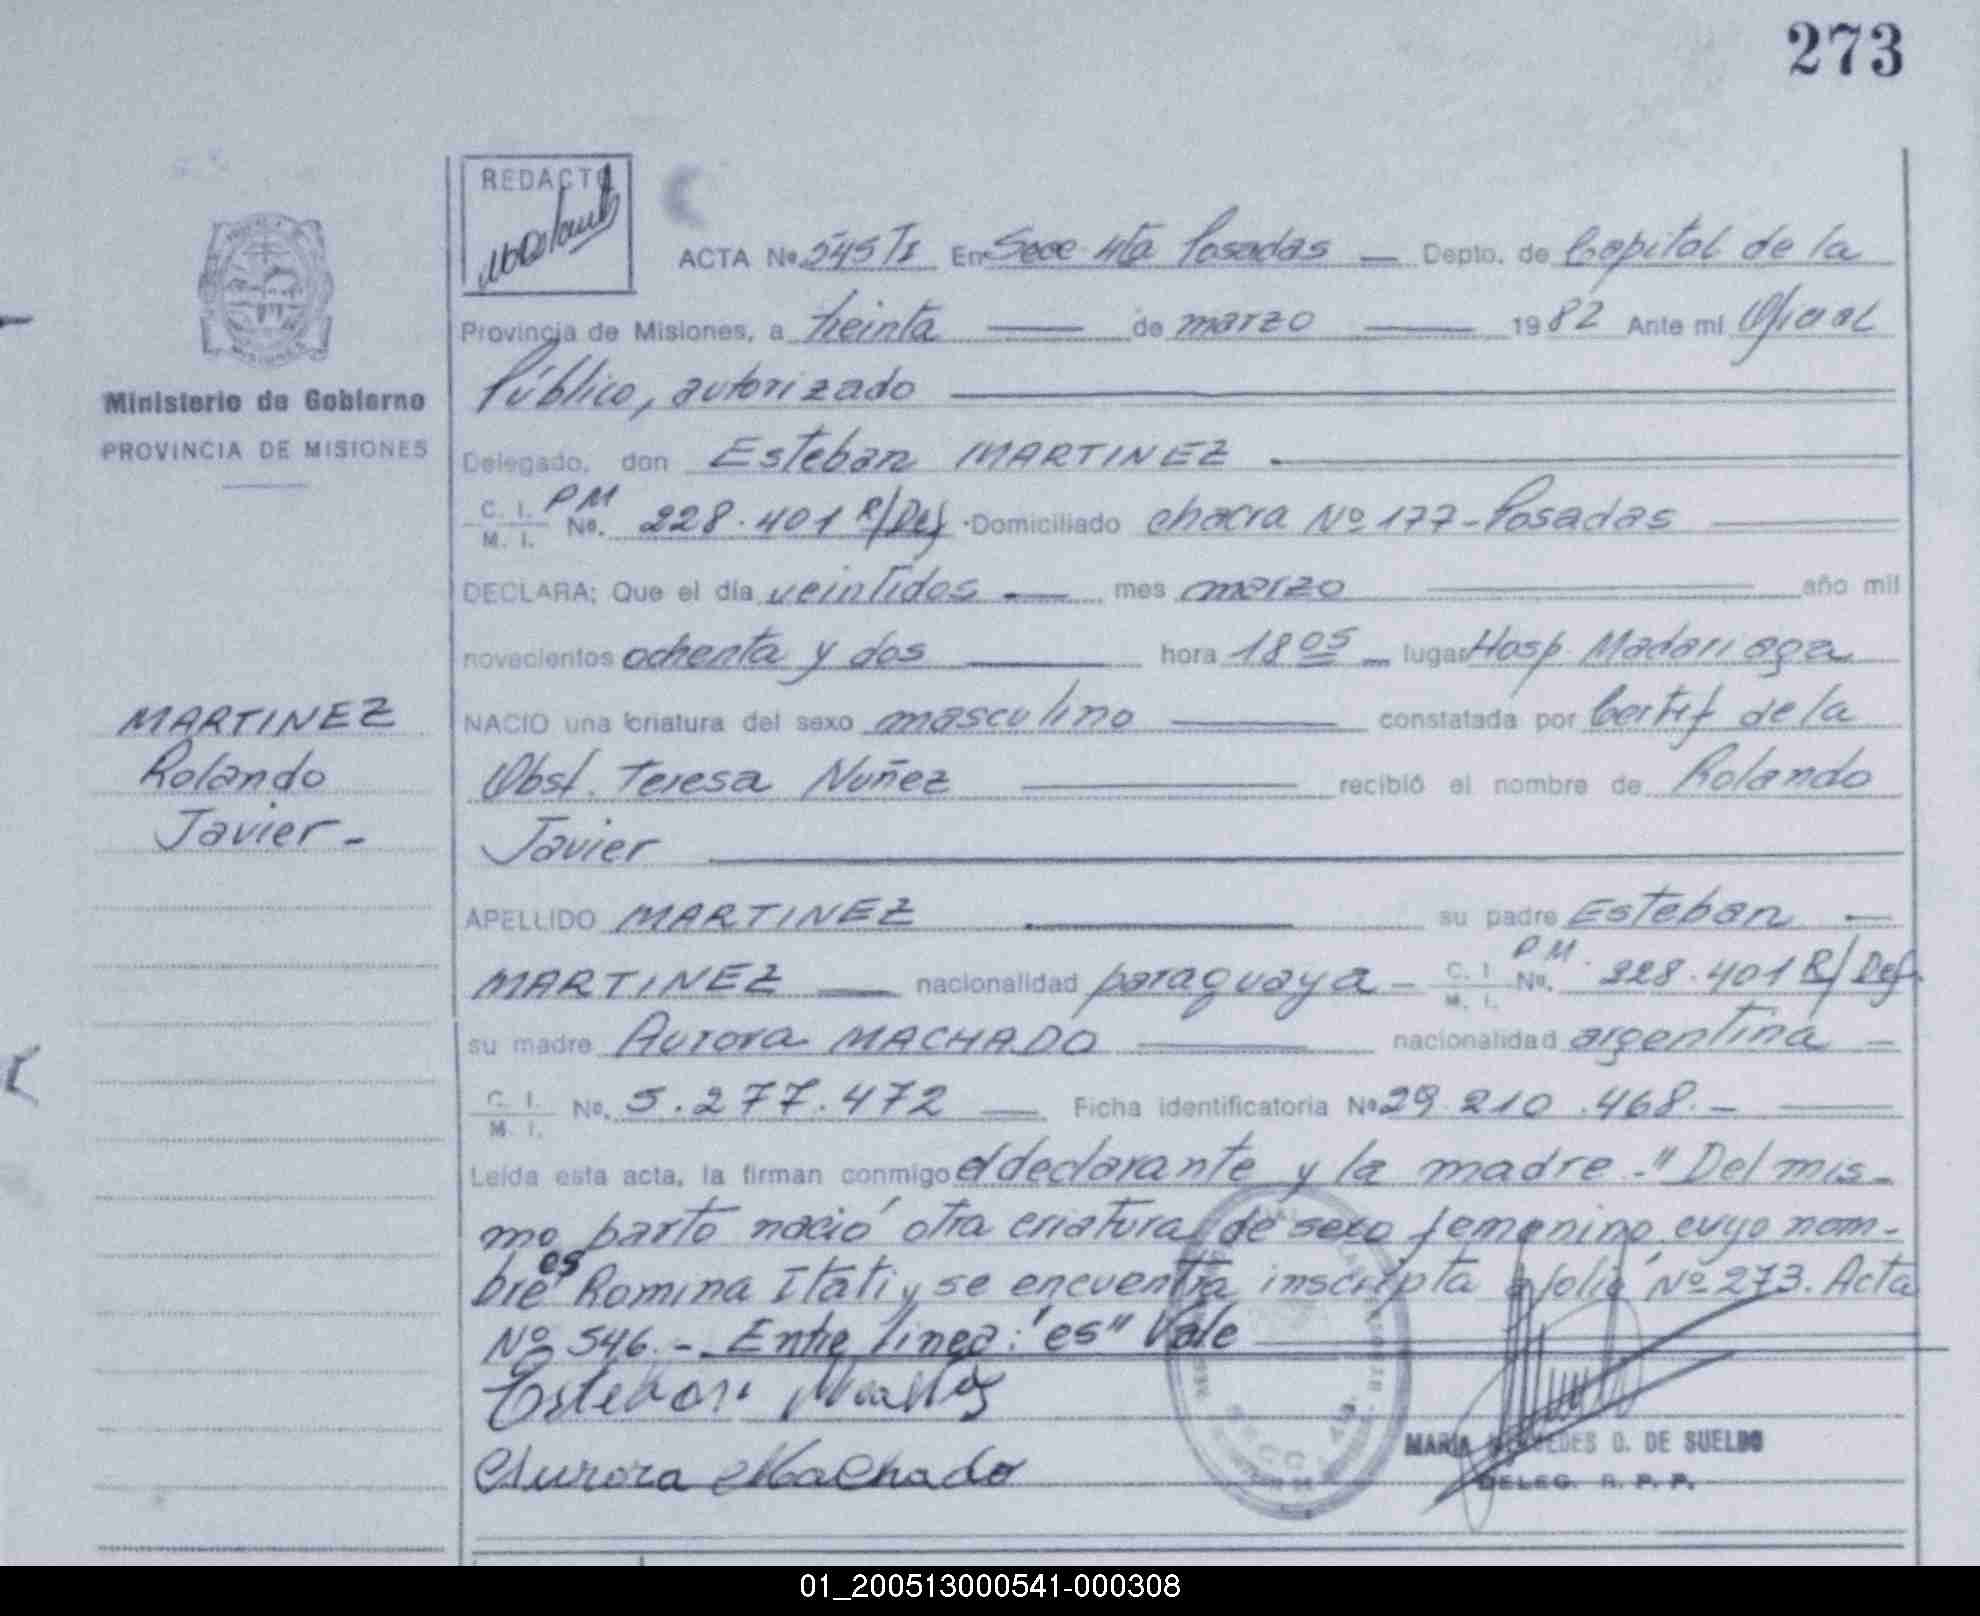 273
REDACTO
ACTA No. 545 TI En Secc 4ta Posadas — Depto. de Capital de la
Provincia de Misiones, a treinta — de marzo — 1982 Ante mi Oficial
Público, autorizado
Ministerio de Gobierno
PROVINCIA DE MISIONES
Delegado, don Esteban MARTINEZ
C. I. M. I. PM No. 228.401 R/Def. Domiciliado chacra Nº 177 - Posadas
DECLARA: Que el día veintidos — mes marzo — año mil
novecientos ochenta y dos — hora 18 05 — lugar Hosp. Madariaga
MARTINEZ
Rolando
Javier -
NACIO una criatura del sexo masculino — constatada por Certif de la
Obst. Teresa Nuñez — recibió el nombre de Rolando
Javier
APELLIDO MARTINEZ — su padre Esteban —
MARTINEZ — nacionalidad paraguaya - C. I. M. I. PM. No. 228.401 R/Def.
su madre Aurora MACHADO — nacionalidad argentina —
C. I. M. I. No. 5.277.472 — Ficha identificatoria No 29.210.468.-
Leída esta acta, la firman conmigo el declarante y la madre.-" Del mis-
mo parto nació otra criatura, de sexo femenino cuyo nom-
bre es Romina Itati y se encuentra inscripta a folio Nº 273. Acta
Nº 546.- Entre linea: "es" Vale
Esteban Martinez
Aurora Machado
SECC. 4ta.
MARIA MERCEDES D. DE SUELDO
DELEG. R. P. P.
01_200513000541-000308